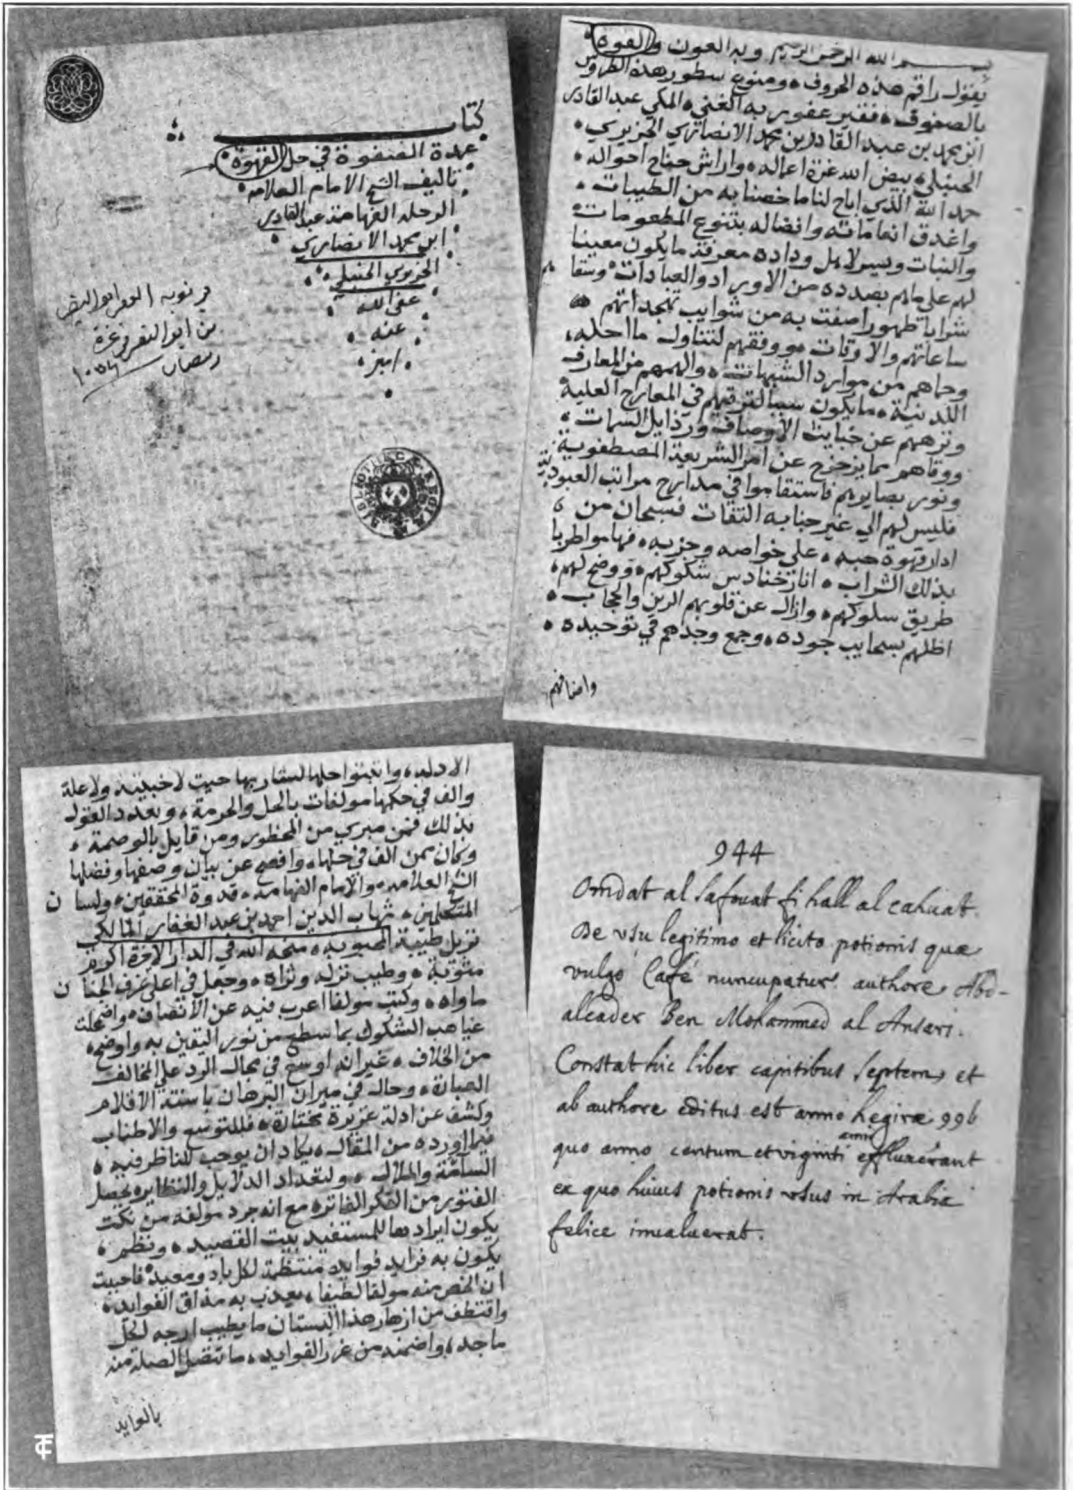 كتاب
عمدة الصفوة في حل القهوة
تاليف الشيخ الامام العلامه
الرحله الفهامة عبد القادر
ابن محمد الانصاري
الجزيري الحنبلي
عفى الله
عنه
امين
رمضان ١٠٥٤
BIBLIOTHECÆ REGIÆ
بسم الله الرحمن الرحيم وبه العون والقوه
يقول راقم هذه الحروف ومنوع سطور هذه الطروس
بالصفوف فقير عفو ربه الغني المكي عبد القادر
ابن محمد بن عبد القادر بن محمد الانصاري الجزيري
الحنبلي بيض الله غرة اعماله وراش جناح احواله
حمد الله الذي اباح لنا ما خصنا به من الطيبات
واغدق انعاماته وافضاله بتنوع المطعومات
والنبات ويسر لاهل وداده معرفة ما يكون معينا
لهم على ما هم بصدده من الاوراد والعبادات وسقاهم
شرابا طهورا صفت به من شوايب تهجداتهم
ساعاتهم والاوقات ووفقهم لتناول ما احله
وحماهم من موارد الشبهات والهمهم من المعارف
اللدنية ما يكون سببا لترقيهم في المعارج العلية
ونزههم عن خبايث الاوصاف ورذايل السمات
ووقاهم مما يزحزح عن امر الشريعة المصطفوية
ونور بصايرهم فاستقاموا في مدارج مراتب العبودية
فليس لهم الى غير جنابه التفات فسبحان من
ادار قهوة حبه على خواصه وحزبه فهاموا طربا
بذلك الشراب انار حنادس شكوكهم ووضح لهم
طريق سلوكهم وازال عن قلوبهم الرين والحجاب
اظلهم بسحايب جوده وجمع وجدهم في توحيده
واضافهم
الادله واثبتوا حلها لشاربها حيث لا خبيثة ولا علة
والف في حكمها مولفات بالحل والحرمة وتعدد القول
بذلك فمن مبري من المحظور ومن قايل بالوصمة
وكان ممن الف في حلها وافصح عن بيان وصفها وفضلها
الشيخ العلامه والامام الفهامه قدوة المحققين ولسان
المتكلمين شهاب الدين احمد بن عبد الغفار المالكي
نزيل طيبة المحبوبه منحه الله في الدار الاخرة اكرم
مثوبة وطيب نزله وثراه وجعل في اعلى غرف الجنان
ماواه وكتب مولفا اعرب فيه عن الانصاف واضمحلت
غياهب الشكوك بما سطع من نور اليقين به واوضحه
من الخلاف غير انه اوسع في مجال الرد على المخالف
العبارة وجال في ميدان البرهان باسنة الاقلام
وكشف عن ادلة عزيزة مختارة فللتوسع والاطناب
فيما اورده من المقال يكاد ان يوجب للناظر فيه
السآمة والملال ولتعداد الدلايل والنظاير يحصل
الفتور من الفكر الفاتر مع انه جرد مولفه من نكت
يكون ايرادها للمستفيد بيت القصيد ونظم
يكون به فرايد فوايده منتظمة لكل باد ومعيد فاحببت
ان الخص منه مولفا لطيفا يعذب به مذاق الفوايد
واقتطف من ازهار هذا البستان ما يطيب ارجه لكل
ماجد واضمنه من غرر الفوايد ما تتصل الصلة منه
بالعايد
944
Omdat al safouat fi hall al cahuat.
De usu legitimo et licito potionis quæ
vulgo Café nuncupatur. authore Abd-
alcader Ben Mohammed al Ansari.
Constat hic liber capitibus septem, et
ab authore editus est anno hegiræ 996
quo anno centum et viginti anni effluxerant
ex quo huius potionis usus in Arabia
felice invaluerat.